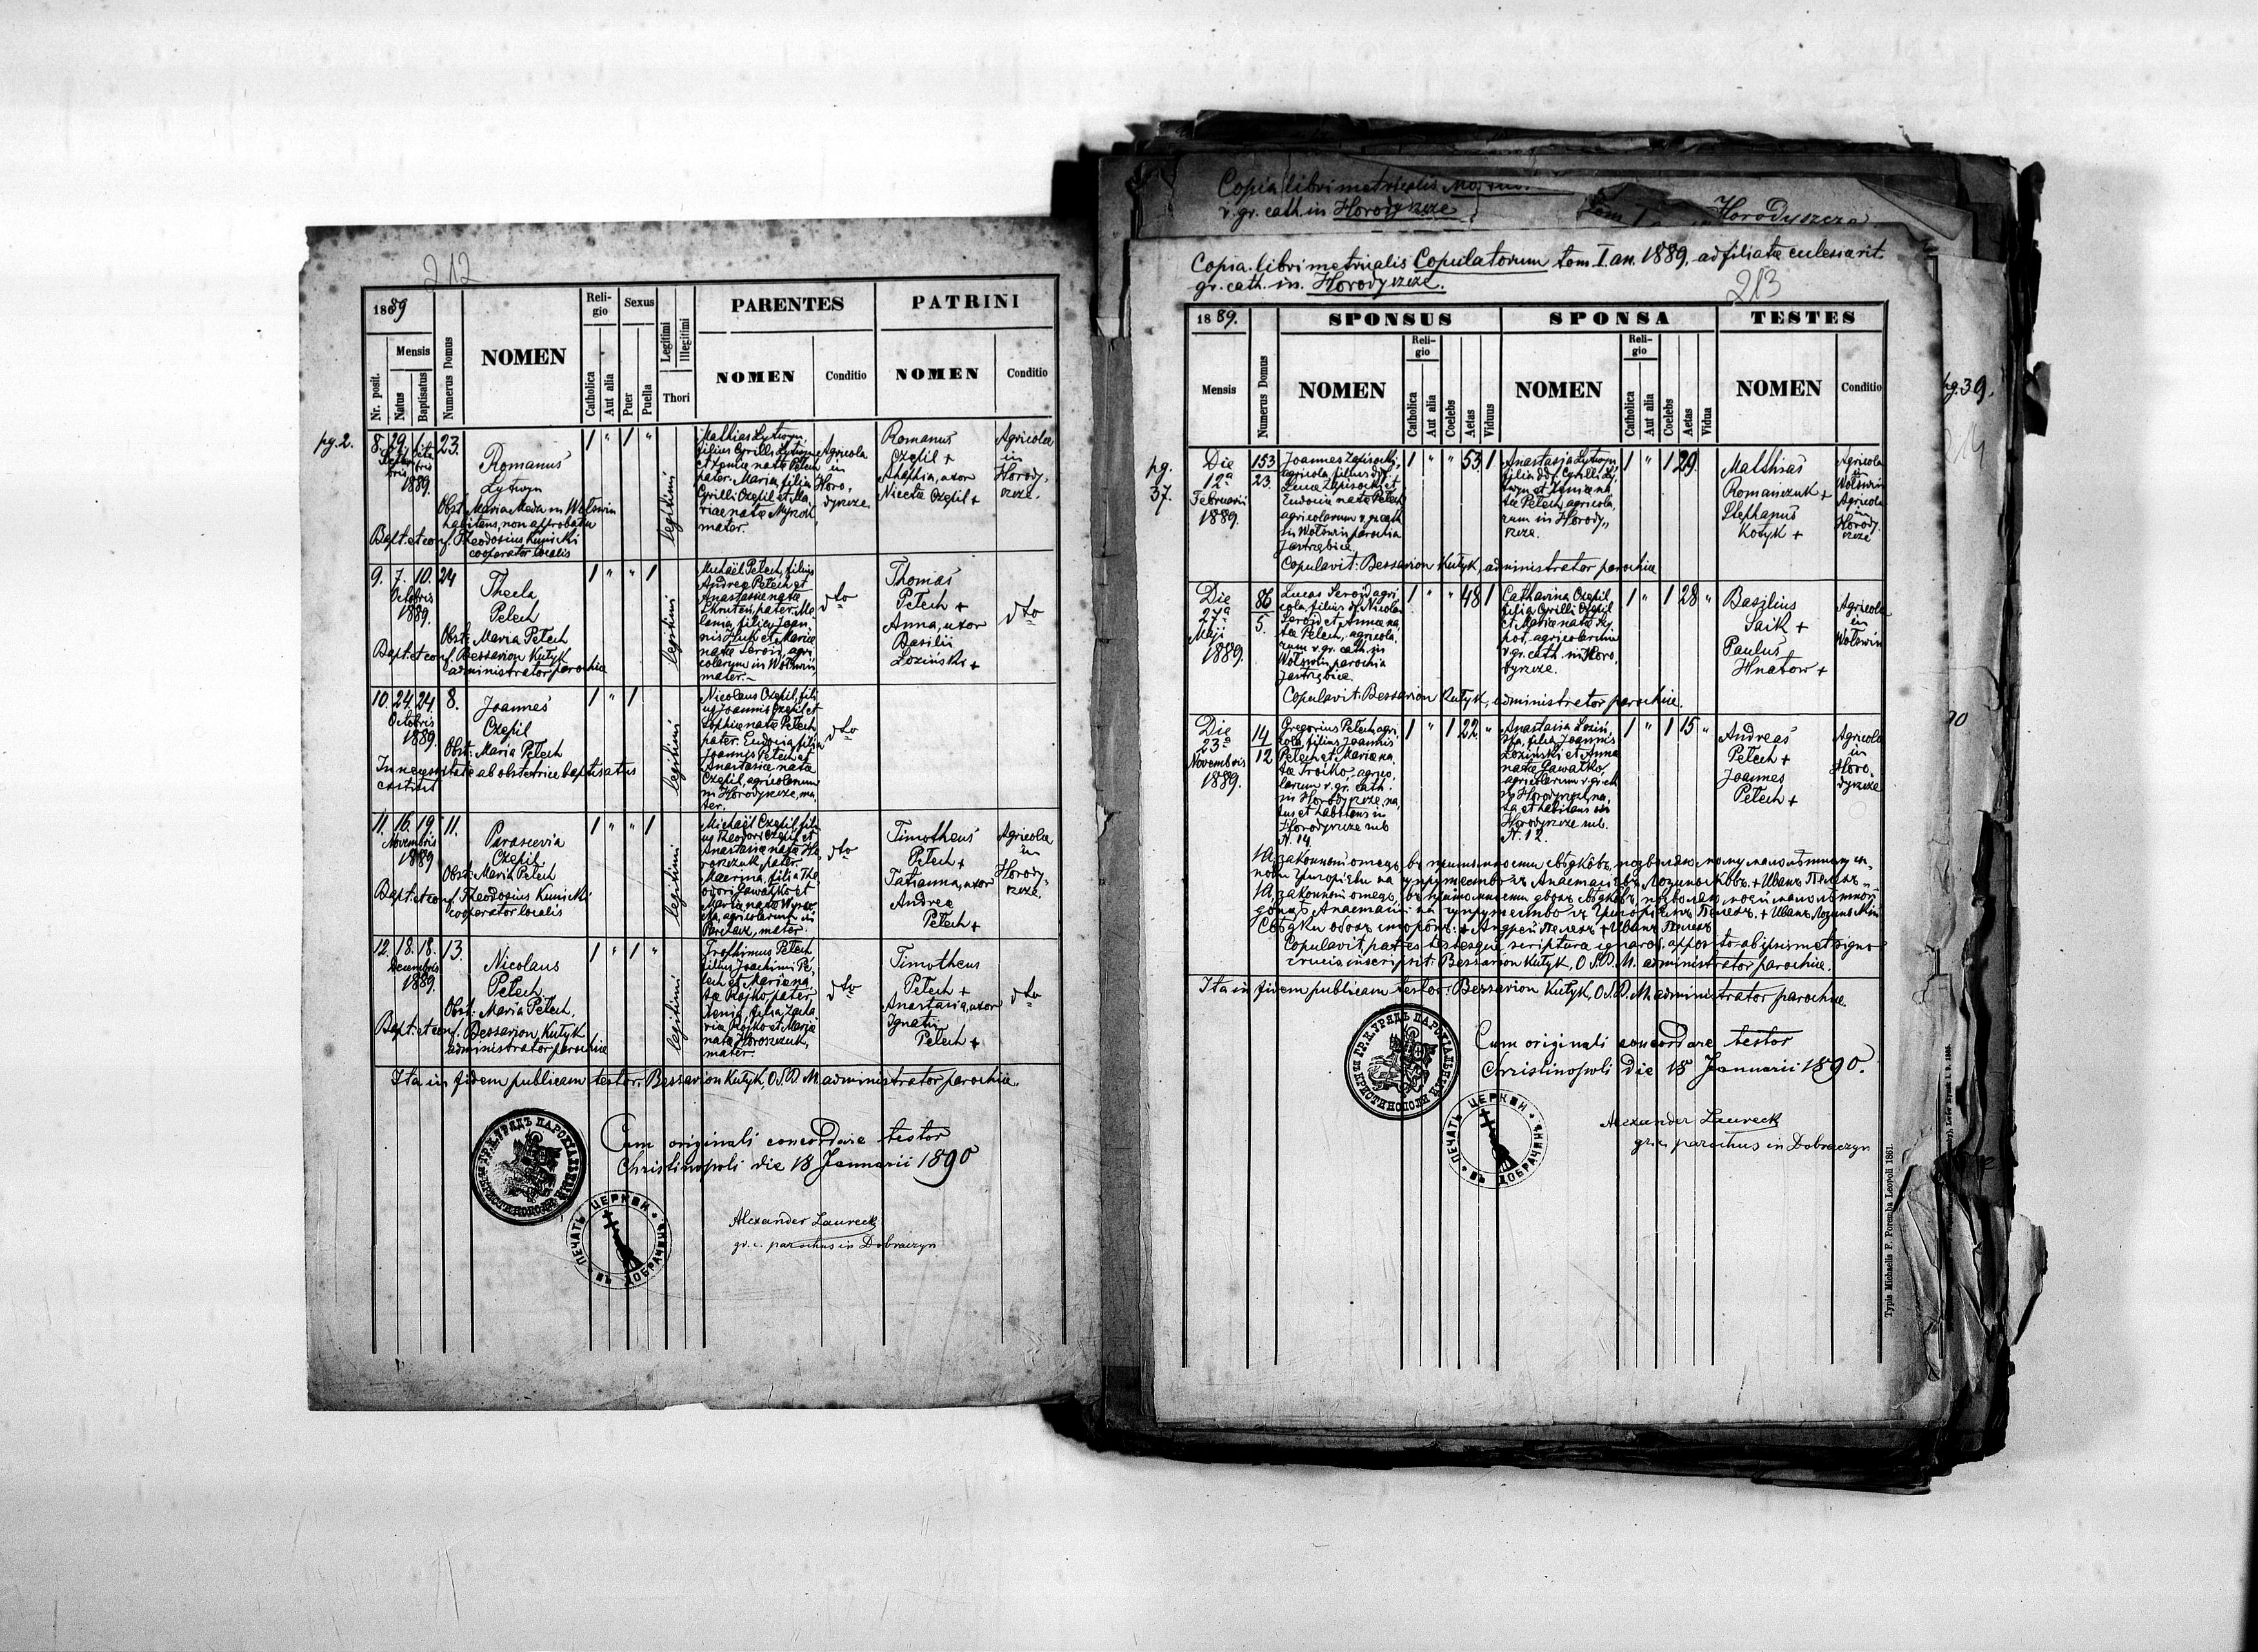 212
1889
Nr. posit.
Mensis
Natus
Baptisatus
Numerus Domus
NOMEN
Religio
Catholica
Aut alia
Sexus
Puer
Puella
Legitimi
Illegitimi
Thori
PARENTES
NOMEN
Conditio
PATRINI
NOMEN
Conditio
pg. 2.
8. 29. 1. 23.
1889.
Romanus
Lytwyn
Obst. Maria Meda in Wołświn
habitans, non approbata
Bapt. et conf. Theodosius Kunicki
cooperator localis
1 " 1 "
legitimi
Mathias Lytwyn,
filius Cyrilli Lytwyn
et Xeniae nata Pełech
pater. Maria, filia
Cyrilli Czepil et Ma,
riae nata
mater.
Agricola
in
Horo,
dyszcze
Romanus
Czepil +
Agaphia, uxor
Nicetae Czepil +
Agricolae
in
Horody,
szcze.
9. 7. 10. 24
Octobris
1889.
Thecla
Pełech
Obst. Maria Pełech
Bapt. et conf. Bessarion Kutyk
administrator parochiae
1 " " 1
legitimi
Michaël Pełech, filius
Andreae Pełech et
Anastasiae nata
pater. Me,
lania, filia Joan,
nis Hluk et Mariae
nata Seroid, agri,
colarum in Wołświn,
mater.
dto
Thomas
Pełech +
Anna, uxor
Basilii
Łoziński +
dto
10. 24. 24. 8.
Octobris
1889.
Joannes
Czepil
Obst. Maria Pełech
In necessitate ab obstetrice baptisatus
1 " 1
legitimi
Nicolaus Czepil, fili
us Joannis Czepil et
Sophiae nata Pełech,
pater. Eudocia, filia
Joannis Pełech et
Anastasiae nata
Czepil, agricolarum
in Horodyszcze, ma,
ter.
dto
11. 16. 19. 11.
Novembris
1889
Parascevia
Czepil
Obst. Maria Pełech
Bapt. et conf. Theodosius Kunicki
cooperator localis
1 " " 1
legitimi
Michaël Czepil, fili
us Theodori Czepil et
Anastasiae nata Ho,
roszczuk, pater
Macrina, filia The
odori Gawałko et
Mariae nata
agricolarum in
mater.
dto
Timotheus
Pełech +
Tatianna, uxor
Andreae
Pełech +
Agricolae
in
Horody,
szcze.
12. 18. 18. 13.
Decembris
1889.
Nicolaus
Pełech
Obst. Maria Pełech.
Bapt. et conf. Bessarion Kutyk
administrator parochiae
1 " 1 "
legitimi
Trophimus Pełech
filius Joachimi Pe,
łech et Mariae na,
ta Rojko, pater
Xenia, filia Zacha
riae Rojko et Mariae
nata Horoszczuk,
mater.
dto
Timotheus
Pełech +
Anastasia, uxor
Ignatii
Pełech +
dto
Ita in fidem publicam testor. Bessarion Kutyk, O.S.B.M. administrator parochiae.
Cum originali concordare testor
Christinopoli die 18 Januarii 1890
Alexander Laureck
gr. c. parochus in Dobraczyn
ПЕЧАТЬ ЦЕРКВИ ВЪ ДОБРАЧИНѢ
Copia libri metricalis
r. gr. cath. in Horodyszcze
Tom I
Horodyszcze
Copia libri metricalis Copulatorum tom I. an. 1889. ad filiatae ecclesiae rit.
gr. cath. in Horodyszcze.
213
1889.
Mensis
Numerus Domus
SPONSUS
NOMEN
Religio
Catholica
Aut alia
Coelebs
Aetas
Viduus
SPONSA
NOMEN
Religio
Catholica
Aut alia
Coelebs
Aetas
Vidua
TESTES
NOMEN
Conditio
pg.
37.
Die
12a
Februarii
1889.
153
23.
Joannes Zapisocki,
agricola, filius ddf.
Lucae Zapisocki et
Eudociae nata Pełech
agricolarum r. gr. cath
in Wołświn parochia
Jastrzębica.
1 " " 53 1
Anastasia Lytwyn
filia ddf. Cyrilli Ly,
twyn et Xeniae na
ta Pełech, agricola,
rum in Horody,
szcze.
1 " 1 29.
Matthias
Romańczuk +
Stephanus
Kotyk +
Agricola
in
Wołświn
Agricola
in
Horody
szcze
Copulavit: Bessarion Kutyk, administrator parochiae
Die
27a
Maji
1889.
86
5.
Lucas Seroid agri
cola, filius df. Nicolai
Seroid et Anniae na,
ta Pełech, agricola,
rum r. gr. cath. in
Wołświn, parochia
Jastrzębica.
1 " " 48 1
Catharina Czepil
filia Cyrilli Czepil
et Mariae nata
agricolarum
r. gr. cath. in Horo,
dyszcze.
1 " 1 28 "
Basilius
Saik +
Paulus
Hnatow +
Agricolae
in
Wołświn
Copulavit: Bessarion Kutyk, administrator parochiae.
Die
23a
Novembris
1889.
14
12
Gregorius Pełech, agri,
cola, filius Joannis
Pełech et Mariae na,
ta Trojko, agrico,
larum r. gr. cath.
in Horodyszcze, na,
tus et habitans in
Horodyszcze sub
N. 14.
1 " 1 22 "
Anastasia Łoziń,
ska, filia Joannis
Łoziński et Annae
nata Gawałko,
agricolarum r. gr. cth
in Horodyszcze, na,
ta et habitans in
Horodyszcze sub.
N. 12.
1 " 1 15 "
Andreas
Pełech +
Joannes
Pełech +
Agricolae
in
Horo,
dyszcze
Copulavit, patres testesque scripturae ignaros, apposito ab ipsismet signo
crucis inscripsit: Bessarion Kutyk, O.S.B.M. administrator parochiae.
Ita in fidem publicam testor: Bessarion Kutyk, O.S.B.M. administrator parochiae
Cum originali concordare testor
Christinopoli die 18 Januarii 1890.
Alexander Laureck
gr. c. parochus in Dobraczyn
ПЕЧАТЬ ЦЕРКВИ ВЪ ДОБРАЧИНѢ
Typis Michaelis F. Poremba Leopoli 1861.
pg. 39.